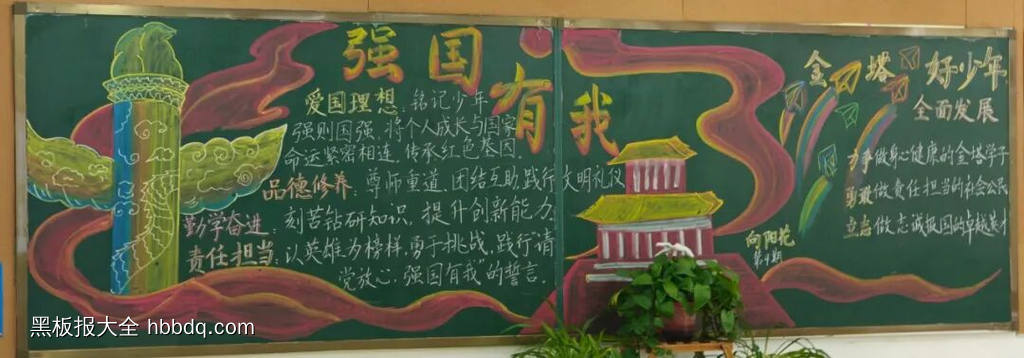 强国有我
爱国理想：铭记少年
强则国强，将个人成长与国家
命运紧密相连，传承红色基因。
品德修养：尊师重道，团结互助，践行文明礼仪
勤学奋进：刻苦钻研知识，提升创新能力
责任担当：以英雄为榜样，勇于挑战，践行"请
党放心，强国有我"的誓言。
金塔好少年
全面发展
力争做身心健康的金塔学子
勇敢做责任担当的社会公民
立志做志诚报国的卓越英才
向阳花
第4期
黑板报大全 hbbdq.com